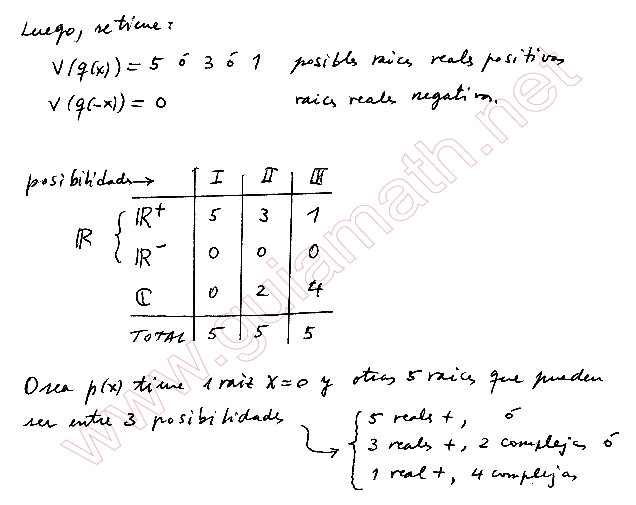 Luego, se tiene:
V(q(x)) = 5 ó 3 ó 1 posibles raices reales positivas
V(q(-x)) = 0 raices reales negativas.
posibilidades → I II III
ℝ { ℝ+ 5 3 1
ℝ- 0 0 0
ℂ 0 2 4
TOTAL 5 5 5
Osea p(x) tiene 1 raiz x=0 y otras 5 raices que pueden
ser entre 3 posibilidades
5 reales +, ó
3 reales +, 2 complejas ó
1 real +, 4 complejas
www.guiamath.net